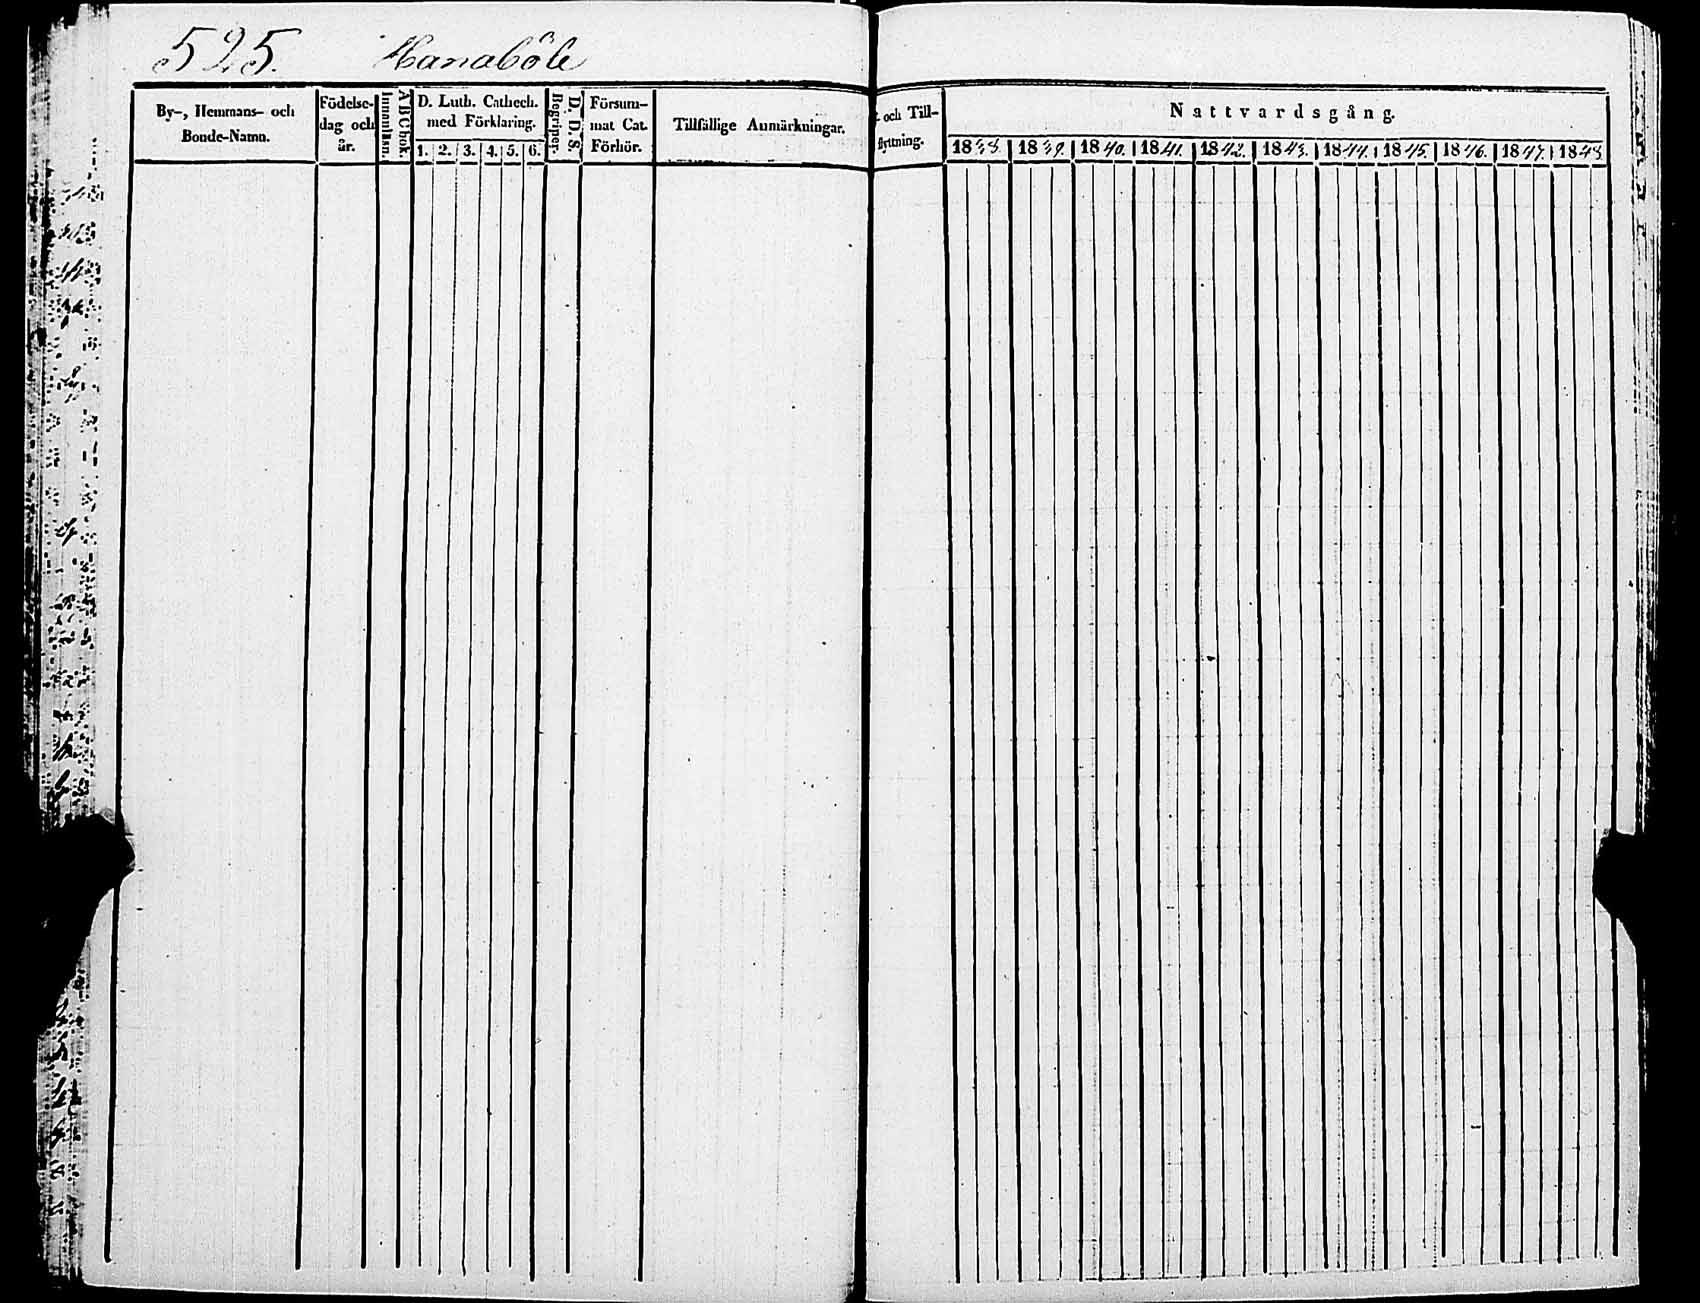 525. Hanaböle
By-, Hemmans- och
Bonde-Namn.
Födelse-
dag och
år.
Innanläsn.
ABCbok.
D. Luth. Cathech.
med Förklaring.
1. 2. 3. 4. 5. 6.
Begriper.
D. D. S.
Försum-
mat Cat.
Förhör.
Tillfällige Anmärkningar.
och Till-
flyttning.
Nattvardsgång.
1838 1839. 1840. 1841. 1842. 1843. 1844. 1845. 1846. 1847. 1848